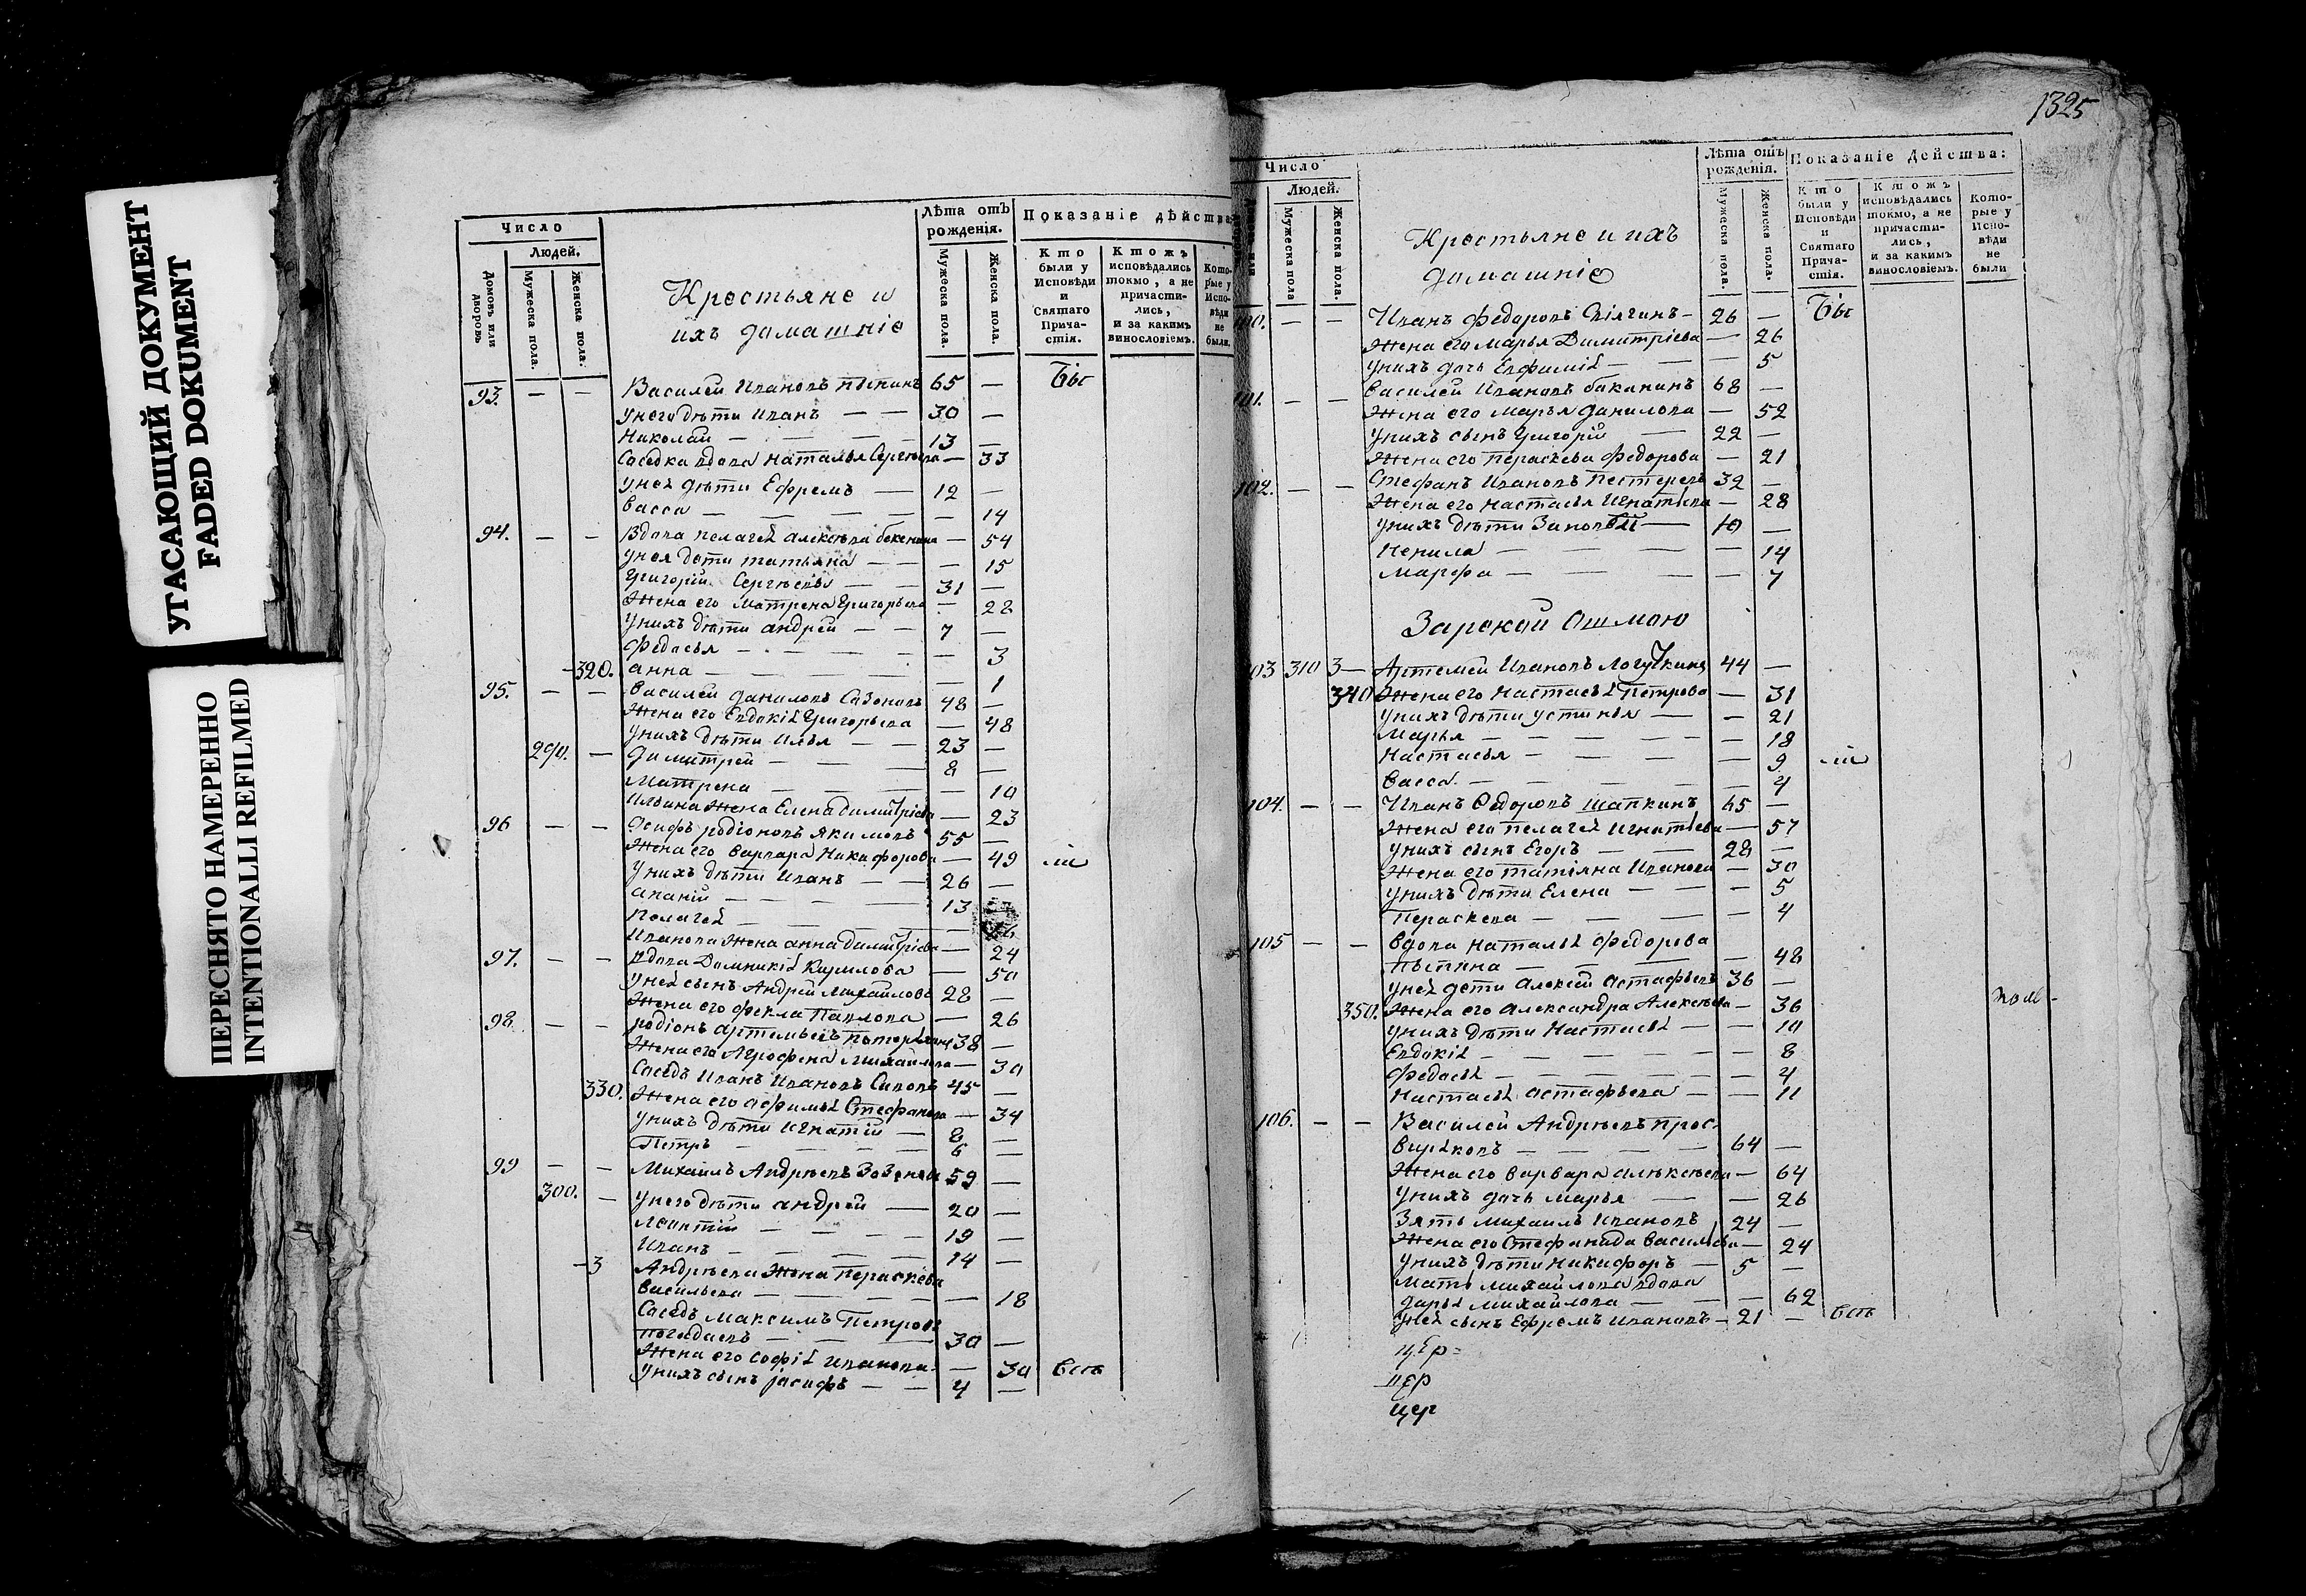 УГАСАЮЩИЙ ДОКУМЕНТ
FADED DOKUMENT
ПЕРЕСНЯТО НАМЕРЕННО
INTENTIONALLI REFILMED
Число
Людей.
Домовъ или дворовъ
Мужеска пола.
Женска пола.
Крестьяне и
ихъ домашніе
Лѣта отъ рожденія.
Мужеска пола.
Женска пола.
Показаніе дѣйства
Кто были у Исповѣди и Святаго Причастія.
Ктожъ исповѣдались токмо, а не причастились, и за какимъ винословіемъ.
Которые у Исповѣди не были.
93. — — Василей Ивановъ Пынинъ 65 — Бы
У него дѣти Иванъ — — 30 —
Николай — — — 13 —
Соседка вдова Наталья Сергѣева — 33
У неѣ дѣти Ефремъ — 12 —
Васса — — — — 14
94. — — Вдова Пелагеѣ Алексѣева — 54
У нея дѣти Татьяна — — — 15
Григорій Сергѣевъ — 31 —
Жена его Матрена Григорьева — 22
У нихъ дѣти Андрей — — 7 —
Федосья — — — — 3
320. Анна — — — — 1
95. — — Василей Даниловъ Сазоновъ 48 —
Жена его Евдокіѣ Григорьева — 48
У нихъ дѣти Илья — — 23 —
290. — Димитрей — — — 8 —
Матрена — — — — 10
Ильина жена Елена Димитріева — 23
96 — — Осифъ Родіоновъ Якимовъ 55 —
Жена его Варвара Никифорова — 49 ли
У нихъ дѣти Иванъ — — 26 —
Ананій — — — 13
Пелагеѣ — — —
Иванова жена Анна Димитріева — 24
97. — — Вдова Домникіѣ Кирилова — 50
У неѣ сынъ Андрей Михайловъ 28 —
Жена его Фекла Павлова — 26
98 — — Родіонъ Артемьевъ 38 —
Жена его Агрофена Михайлова — 30
Соседъ Иванъ Ивановъ Сиповъ 45 —
330. Жена его Афимьѣ Стефанова — 34
У нихъ дѣти Игнатій — 8 —
Петръ — — — — 6 —
99 — — Михаилъ Андрѣевъ 59 —
300. — У него дѣти Андрей — 20 —
Леонтій — — — 19 —
Иванъ — — — 14 —
3 Андрѣева жена Параскева
Васильева — — — — 18
Соседъ Максимъ Петровъ
Погодаевъ — — — 30 —
Жена его Софіѣ Иванова — 30 Всѣ
У нихъ сынъ Іосифъ — — 4 —
1325
Число
Людей.
Мужеска пола
Женска пола.
Крестьяне и ихъ
домашніе
Лѣта отъ рожденія.
Мужеска пола.
Женска пола.
Показаніе Действа:
Кто были у Исповѣди и Святаго Причастія.
Ктожъ исповѣдались токмо, а не причастились, и за какимъ винословіемъ.
Которые у Исповѣди не были
100. — — Иванъ Федоровъ 26 — Бы
Жена его Марья Димитріева — 26
У нихъ дочь Евфиміѣ — — 5
101. — — Василей Ивановъ Бакинъ 68 —
Жена его Марья Данилова — 52
У нихъ сынъ Григорій — 22 —
Жена его Пераскева Федорова — 21
102. — — Стефанъ Ивановъ Пестеревъ 32 —
Жена его Настасья Игнатіева — 28
У нихъ дѣти Зиновей — 10 —
Ненила — — — — 14
Марфа — — — 7
За рекой Ошмою
103 310 3 — Артемей Ивановъ Логучкинъ 44 —
340 Жена его Настасьѣ Петрова — 31
У нихъ дѣти Устинья — — 21
Марья — — — — 18
Настасья — — — — 9 ли
Васса — — — — 4
104. — — Иванъ Федоровъ Шапкинъ 65 —
Жена его Пелагеѣ Игнатіева — 57
У нихъ сынъ Егоръ — — 28 —
Жена его Татіяна Иванова — 30
У нихъ дѣти Елена — — — 5
Пераскева — — — — 4
105 — — Вдова Натальѣ Федорова
Пынина — — — — 48
У неѣ дети Алексѣй Астафьевъ 36 —
350. Жена его Александра Алексѣева — 36
У нихъ дѣти Настасьѣ — — 10
Евдокіѣ — — — — — 8
Федосьѣ — — — — — 4
Настасьѣ Астафьева — — 11
106. — — Василей Андрѣевъ Прос-
виряковъ — — — 64 —
Жена его Варвара Алексѣева — 64
У нихъ дочь Марья — — 26
Зять Михаилъ Ивановъ 24 —
Жена его Стефанида Васильева — 24
У нихъ дѣти Никифоръ — 5 —
Мать Михайлова вдова
Дарьѣ Михайлова — — — 62
У неѣ сынъ Ефремъ Ивановъ — 21 — Всѣ
цер
цер
цер